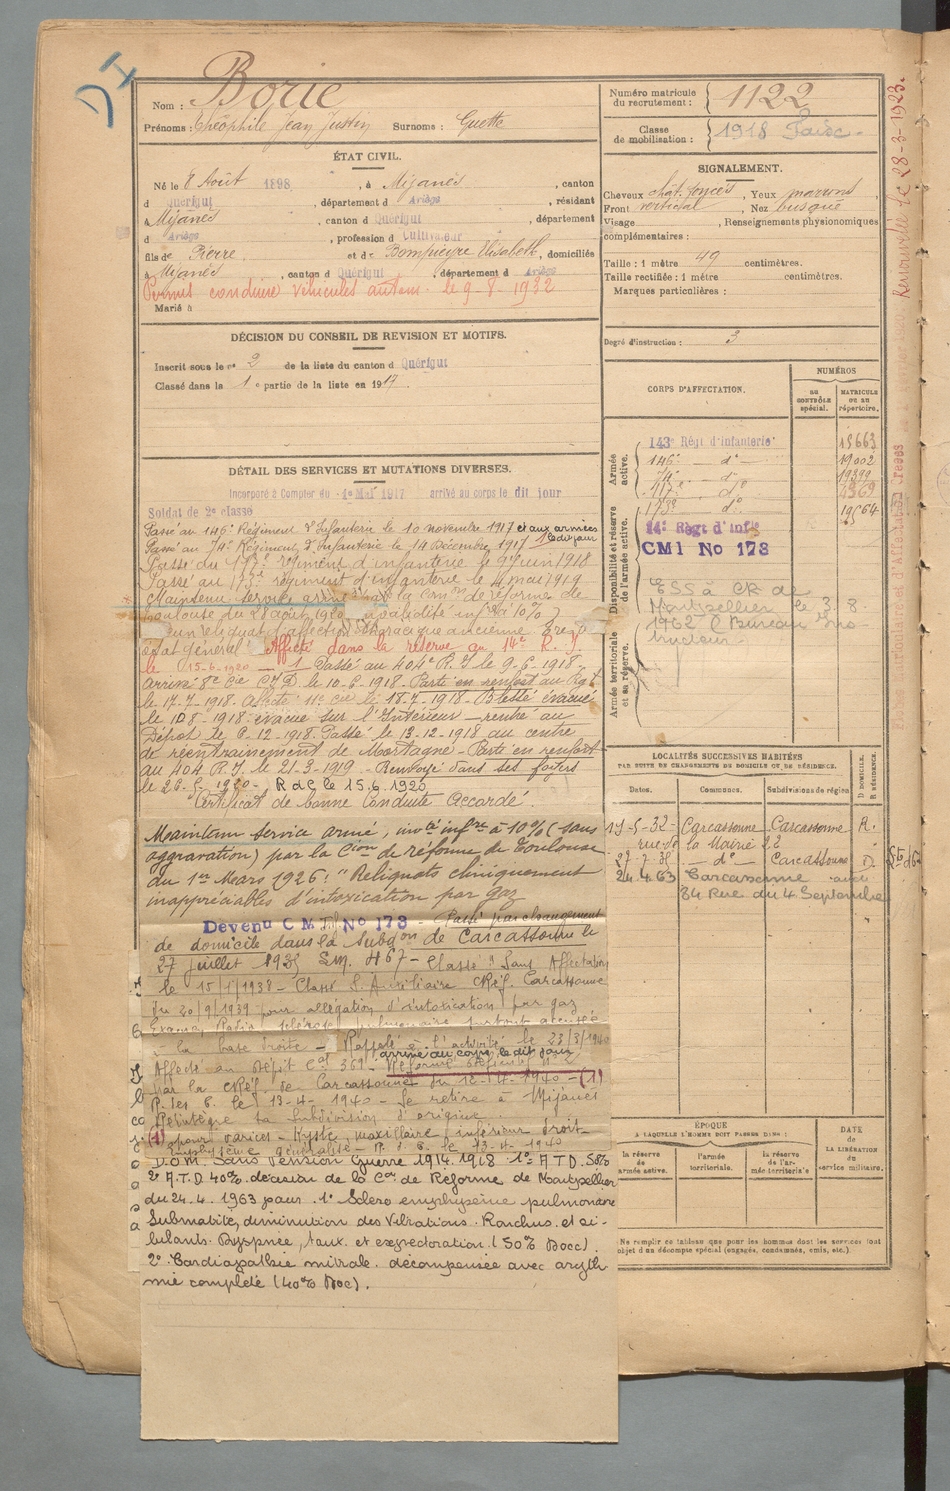 Nom : Borie
Prénoms : Théophile Jean Justin Surnoms : Guette
Numéro matricule du recrutement : 1122
Classe de mobilisation : 1918
ÉTAT CIVIL.
Né le 8 Août 1898, à Mijanès, canton
d Quérigut, département d Ariège, résidant
à Mijanès, canton d Quérigut, département
d Ariège, profession d Cultivateur
fils de Pierre et de Bompieyre Elisabeth, domiciliés
à Mijanès, canton d Quérigut, département d Ariège
Permis conduire véhicules autom. le 9-8-1932
Marié à
SIGNALEMENT.
Cheveux chât. foncés, Yeux marrons
Front vertical, Nez busqué
Visage , Renseignements physionomiques
complémentaires :
Taille : 1 mètre 49 centimètres.
Taille rectifiée : 1 mètre centimètres.
Marques particulières :
Degré d'instruction : 3
DÉCISION DU CONSEIL DE REVISION ET MOTIFS.
Inscrit sous le n° 2 de la liste du canton d Quérigut
Classé dans la 1e partie de la liste en 1917.
DÉTAIL DES SERVICES ET MUTATIONS DIVERSES.
Incorporé à compter du 1er Mai 1917 arrivé au corps le dit jour
Soldat de 2e classe
Passé au 146e Régiment d'Infanterie le 10 novembre 1917 et aux armées
Passé au 74e Régiment d'Infanterie le 14 Décembre 1917 le dit jour
Passé du 117e régiment d'infanterie le 9 Juin 1918
Passé au 173e régiment d'infanterie le 4 mai 1919
Maintenu service armé par la Con de réforme de
Toulouse du 28 août 1920 invalidité infre à 10%
état général. Affecté dans la réserve au 14e R. I.
le 15-6-1920 1 Passé au 404e R.I. le 9-6-1918
Arrivé 8e Cie C.I.D. le 10-6-1918. Parti en renfort au Rgt
le 17-7-1918. Affecté 11e Cie le 18-7-1918. Blessé évacué
le 10-8-1918 évacué sur l'Intérieur - rentré au
Dépôt le 6-12-1918. Passé le 13-12-1918 au centre
de réentrainement de Mortagne - Parti en renfort
au 404 R.I. le 21-3-1919 - Renvoyé dans ses foyers
le 26-5-1920 - R d C le 15.6.1920
Certificat de bonne Conduite Accordé.
Maintenu service armé, invté infre à 10% (sans
aggravation) par la Cion de réforme de Toulouse
du 1er Mars 1926 : "Reliquats cliniquement
inappréciables d'intoxication par gaz
Devenu C M I No 173 - Passé par changement
de domicile dans la Subdon de Carcassonne le
27 juillet 1935 467 - Classé "Sans Affectation
le 15/1/1938 - Classé S. Auxiliaire CRéf. Carcassonne
du 20/9/1939 pour allégation d'intoxication par gaz
pulmonaire surtout accusée
à la base droite - Rappelé à l'activité le 23/3/1940
arrivé au corps le dit jour
Affecté au Dépôt 369 - Réformé définitif
par la CRéf. de Carcassonne du 12-4-1940 - (1)
le 13-4-1940 - Se retire à Mijanès
Réintègre sa subdivision d'origine.
(1) pour varices - Kyste maxillaire inférieur droit
Emphysème généralisé - le 13-4-1940
D.O.M. Sans Pension Guerre 1914.1918 1° A.T.D. 50%
2° A.T.D 40%. décision de la Con de Réforme de Montpellier
du 24.4.1963 pour. 1° Scléro emphysème pulmonaire
Submatité, diminution des Vibrations. Ronchus et si-
bilants. Dyspnée, toux et expectoration. (50% Docc).
2° Cardiopathie mitrale décompensée avec aryth-
mie complète (40% Doc).
CORPS D'AFFECTATION.
NUMÉROS
AU CONTRÔLE spécial.
MATRICULE OU AU répertoire.
Armée active.
143e Régt d'Infanterie 15663
146e - do - 19002
74e - do 19399
117e do 4369
173e do 19564
Disponibilité et réserve de l'armée active.
14e Régt d'Infie
CMI No 173
ESS à CR de
Montpellier le 3.8.
1962 (Bureau
Armée territoriale et sa réserve.
LOCALITÉS SUCCESSIVES HABITÉES
PAR SUITE DE CHANGEMENTS DE DOMICILE OU DE RÉSIDENCE.
Dates. Communes. Subdivisions de région D DOMICILE. R RÉSIDENCE.
19-5-32 - Carcassonne Carcassonne R.
rue de la Mairie 22
27-7-35 - do - Carcassonne D.
24.4.63 Carcassonne
34 Rue du 4 Septembre
ÉPOQUE
A LAQUELLE L'HOMME DOIT PASSER DANS :
DATE DE LA LIBÉRATION du service militaire.
la réserve de l'armée active.
l'armée territoriale.
la réserve de l'armée territoriale
Ne remplir ce tableau que pour les hommes dont les services font
objet d'un décompte spécial (engagés, condamnés, omis, etc.).
Renouvelée le 28-3-1923.